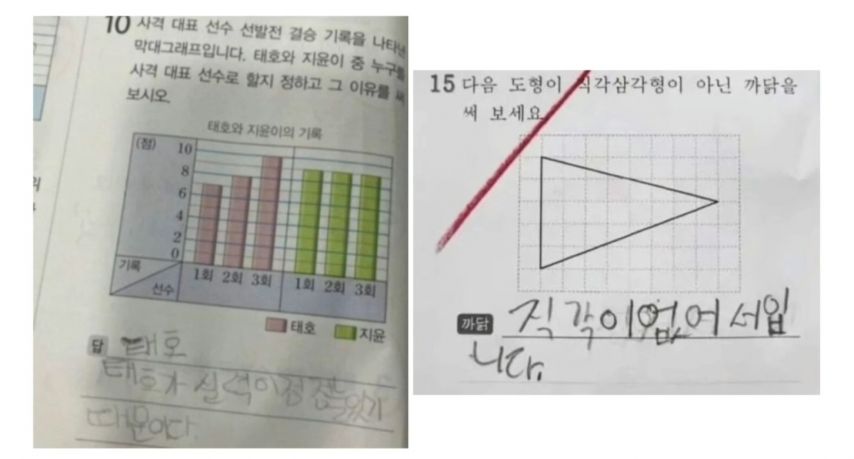 10 사격 대표 선수 선발전 결승 기록을 나타낸
막대그래프입니다. 태호와 지윤이 중 누구를
사격 대표 선수로 할지 정하고 그 이유를 써
보시오.
태호와 지윤이의 기록
(점)
10
8
6
4
2
0
기록
선수
1회 2회 3회 1회 2회 3회
태호 지윤
답 태호
태호가 실력이 점점
때문이다.
15 다음 도형이 직각삼각형이 아닌 까닭을
써 보세요.
까닭 직각이없어서입
니다.